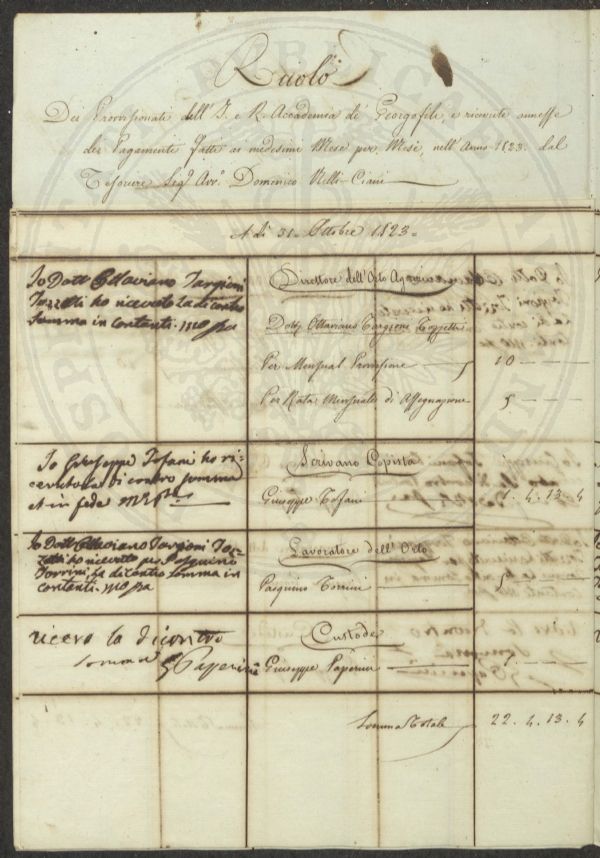 Ruolo
Dei Provvisionati dell'I. e R. Accademia de' Georgofili, e ricevute annesse
dei Pagamenti fatti ai medesimi Mese per Mese, nell'Anno 1823. dal
Tesoriere Sigr. Avv. Domenico Nelli-Ciani
A dì 31. Ottobre 1823.
Io Dott. Ottaviano Targioni
Tozzetti ho ricevuto la di contro
Somma in Contanti.
Direttore dell'Orto Agrario
Dottr. Ottaviano Targioni Tozzetti
Per Mensual Provvisione 10
Per Rata Mensuale di Assegnazione 5
Io Giuseppe Tofani ho ri-
cevuto la di contro somma
et in fede
Scrivano Copista
Giuseppe Tofani 1. 4. 13. 4
Io Dott. Ottaviano Targioni Toz-
zetti ho ricevuto per Pasquino
Torrini la di Contro Somma in
Contanti.
Lavoratore dell'Orto
Pasquino Torrini 5
ricevo la dicontro
somma G Paperini
Custode
Giuseppe Paperini 1.
Somma Totale 22. 4. 13. 4